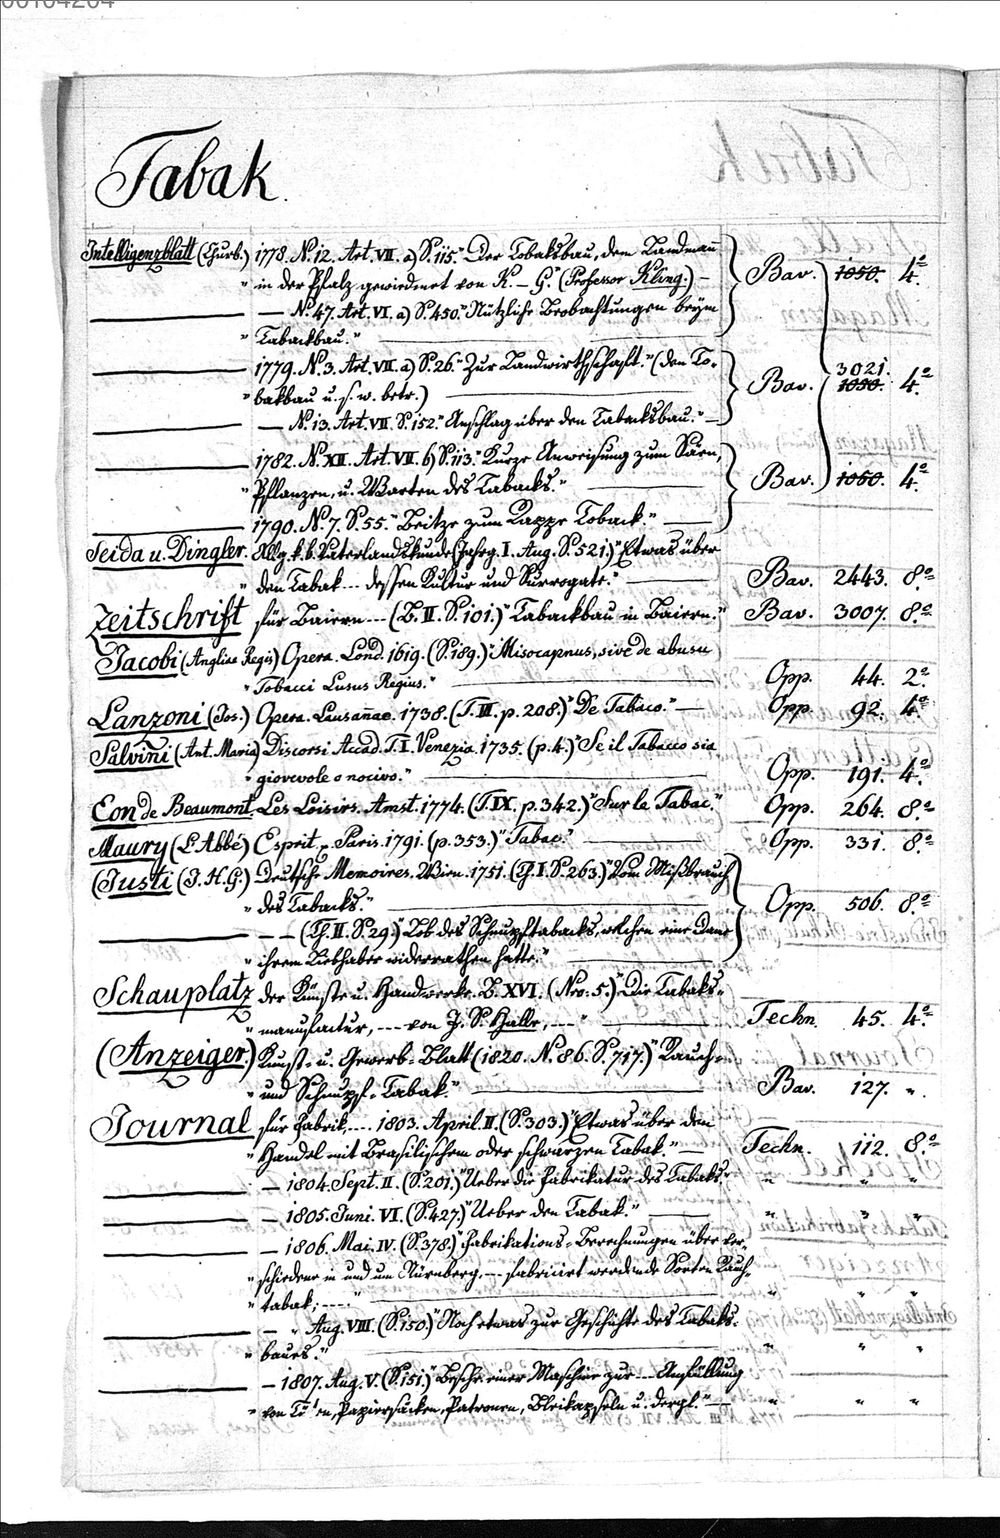 00104204
Tabak.
Intelligenzblatt (Churb.) 1778. N. 12. Art. VII. a) S. 115. "Der Tobaksbau, dem Landmann
" in der Pfalz gewiedmet von K. – G." (Professor Kling.) – Bav. 1050. 4º
— N. 47. Art. VI. a) S. 450. "Nützliche Beobachtungen beym
" Tabackbau."
1779. N. 3. Art. VII. a) S. 26. "Zur Landwirthschaft." (den To-
" bakbau u. s. w. betr.) Bav. 3021. 1030. 4º
— N. 13. Art. VII. S. 152. "Anschlag über den Tabacksbau." –
1782. N. XII. Art. VII. b) S. 113. "Kurze Anweisung zum Säen,
" Pflanzen, u. Warten des Tabacks." Bav. 1050. 4º
1790. N. 7. S. 55. "Beitze zum Rappe Toback." –
Seida u. Dingler. Allg. k. b. Vaterlandskunde (Jahrg. I. Aug. S. 521.) "Etwas über
" den Tabak --- dessen Kultur und Surrogate." Bav. 2443. 8º
Zeitschrift für Baiern --- (B. II. S. 101.) "Tabackbau in Baiern." Bav. 3007. 8º
Jacobi (Angliae Regis) Opera. Lond. 1619. (S. 189.) "Misocapnus, sive de abusu
" Tobacci Lusus Regius." Opp. 44. 2º
Lanzoni (Jos.) Opera. Lausannae. 1738. (T. III. p. 208.) "De Tabaco." – Opp. 92. 4º
Salvini (Ant. Maria) Discorsi Accad. T. I. Venezia. 1735. (p. 4.) "Se il Tabacco sia
" giovevole o nocivo." Opp. 191. 4º
Eon de Beaumont. Les Loisirs. Amst. 1774. (T. IX. p. 342.) "Sur le Tabac." Opp. 264. 8º
Maury (L'Abbé) Esprit. Paris. 1791. (p. 353.) "Tabac." Opp. 331. 8º
(Justi (J. H. G.) Deutsche Memoires. Wien. 1751. (Th. I. S. 263.) "Vom Mißbrauch
" des Tabacks." Opp. 506. 8º
— – – (Th. II. S. 29.) "Lob des Schnupftabacks, welchen eine Dame
" ihrem Liebhaber widerrathen hatte."
Schauplatz der Künste u. Handwerke. B. XVI. (Nro. 5.) "Die Tabaks-
" manufactur, --- von J. S. Halle, ---" Techn. 45. 4º
(Anzeiger.) Kunst- u. Gewerb-Blatt (1820. N. 86. S. 717.) "Rauch-
" und Schnupf-Tabak." Bav. 127. "
Journal für Fabrik, --- 1803. April. II. (S. 303.) "Etwas über den
" Handel mit Brasilischem oder schwarzen Tabak." – Techn. 112. 8º
— – 1804. Sept. II. (S. 201.) "Ueber die Fabrikatur des Tabaks." " " "
— – 1805. Juni. VI. (S. 427.) "Ueber den Tabak." " " "
— – 1806. Mai. IV. (S. 378.) "Fabrikations-Berechnungen über ver-
" schiedene in und um Nürnberg, --- fabricirt werdende Sorten Rauch-
" tabak; ---" " " "
— – " Aug. VIII. (S. 150.) "Noch etwas zur Geschichte des Tabaks-
" baues." " " "
— – 1807. Aug. V. (S. 151) "Beschr. einer Maschine zur --- Anfüllung
" von Tüten, Papiersäcken, Patronen, Bleikapseln u. dergl." – " " "